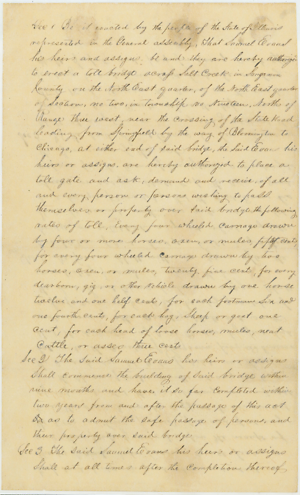 Sec 1 Be it enacted by the people of the State of Illinois
represented in the General assembly, That Samuel Evans
his heirs and assigns be and they are hereby authorized
to erect a toll bridge across Salt Creek in
County on the North East quarter of the North East quarter
of Section, no two, in township No Nineteen, North of
Range three west, near the crossing of the State Road
leading from Springfield by the way of Bloomington to
Chicago, at either end of said bridge, the said Evans his
heirs or assigns are hereby authorized to place a
toll gate and ask, demand and receive of all
and every person or persons wishing to pass
themselves or property over said bridge the following
rates of toll, every four wheeled carriage drawn
by four or more horses, oxen, or mules fifty cents
for every four wheeled carriage drawn by two
horses, oxen, or mules, twenty five cents, for every
dearborn, gig, or other vehicle drawn by one horse
twelve and one half cents, for each Six and
one fourth cent, for each hog, Sheep or goat one
cent, for each head of loose horses, mules, neat
Cattle, or asses three cents
Sec 2 The Said Samuel Evans his heirs or assigns
Shall commence the building of Said bridge within
nine months and have it so far completed within
two years from and after the passage of this act
as to admit the safe passage of persons, and
their property over said bridge.
Sec 3 The Said Samuel Evans his heirs or assigns
Shall at all times after the completion thereof,